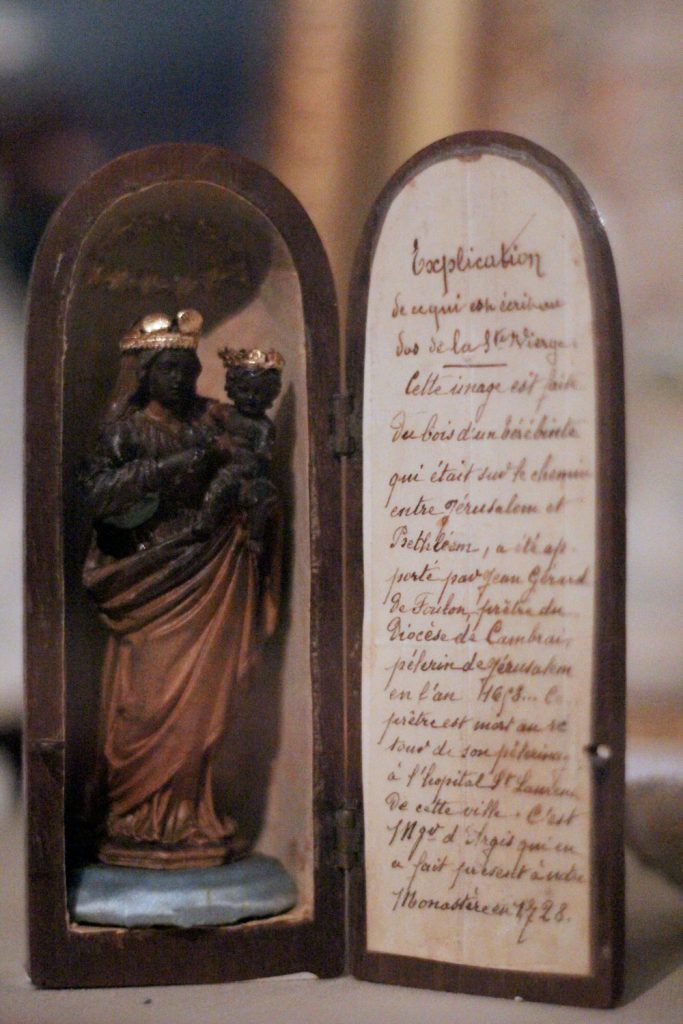 Explication
de ce qui est écrit au
dos de la Ste Vierge
Cette image est faite
du bois d'un térébinte
qui était sur le chemin
entre Jérusalem et
Bethléem, a été ap-
porté par Jean Gérard
de Foulon, prêtre du
Diocèse de Cambrai,
pélerin de Jérusalem
en l'an Ce
prêtre est mort au re
tour de son pélerinage
à l'hopital St Laurent
de cette ville. C'est
Mgr d'Argis qui en
a fait présent à notre
Monastère en 1728.